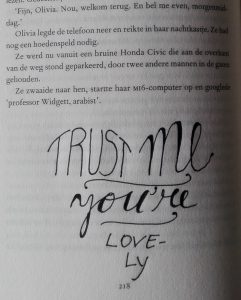 'Fijn, Olivia. Nou, welkom terug. En bel me even, morgenmid-
dag.'
Olivia legde de telefoon neer en reikte in haar nachtkastje. Ze had
nog een hoedenspeld nodig.
Ze werd nu vanuit een bruine Honda Civic die aan de overkant
van de weg stond geparkeerd, door twee andere mannen in de gaten
gehouden.
Ze zwaaide naar hen, startte haar MI6-computer op en googlede
'professor Widgett, arabist'.
TRUST Me
you're
LOVE-
LY
218